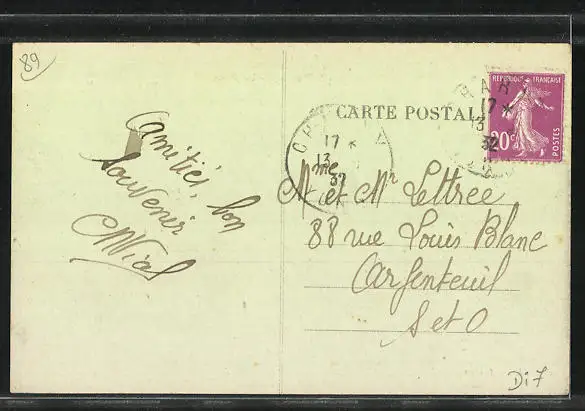 89
CARTE POSTALE
REPUBLIQUE FRANÇAISE
20c
POSTES
17 *
13
32
17 *
13
32
Amitiés, bon
Souvenir
Mme et Mr Lettrée
88 rue Louis Blanc
Argenteuil
S et O
Di7